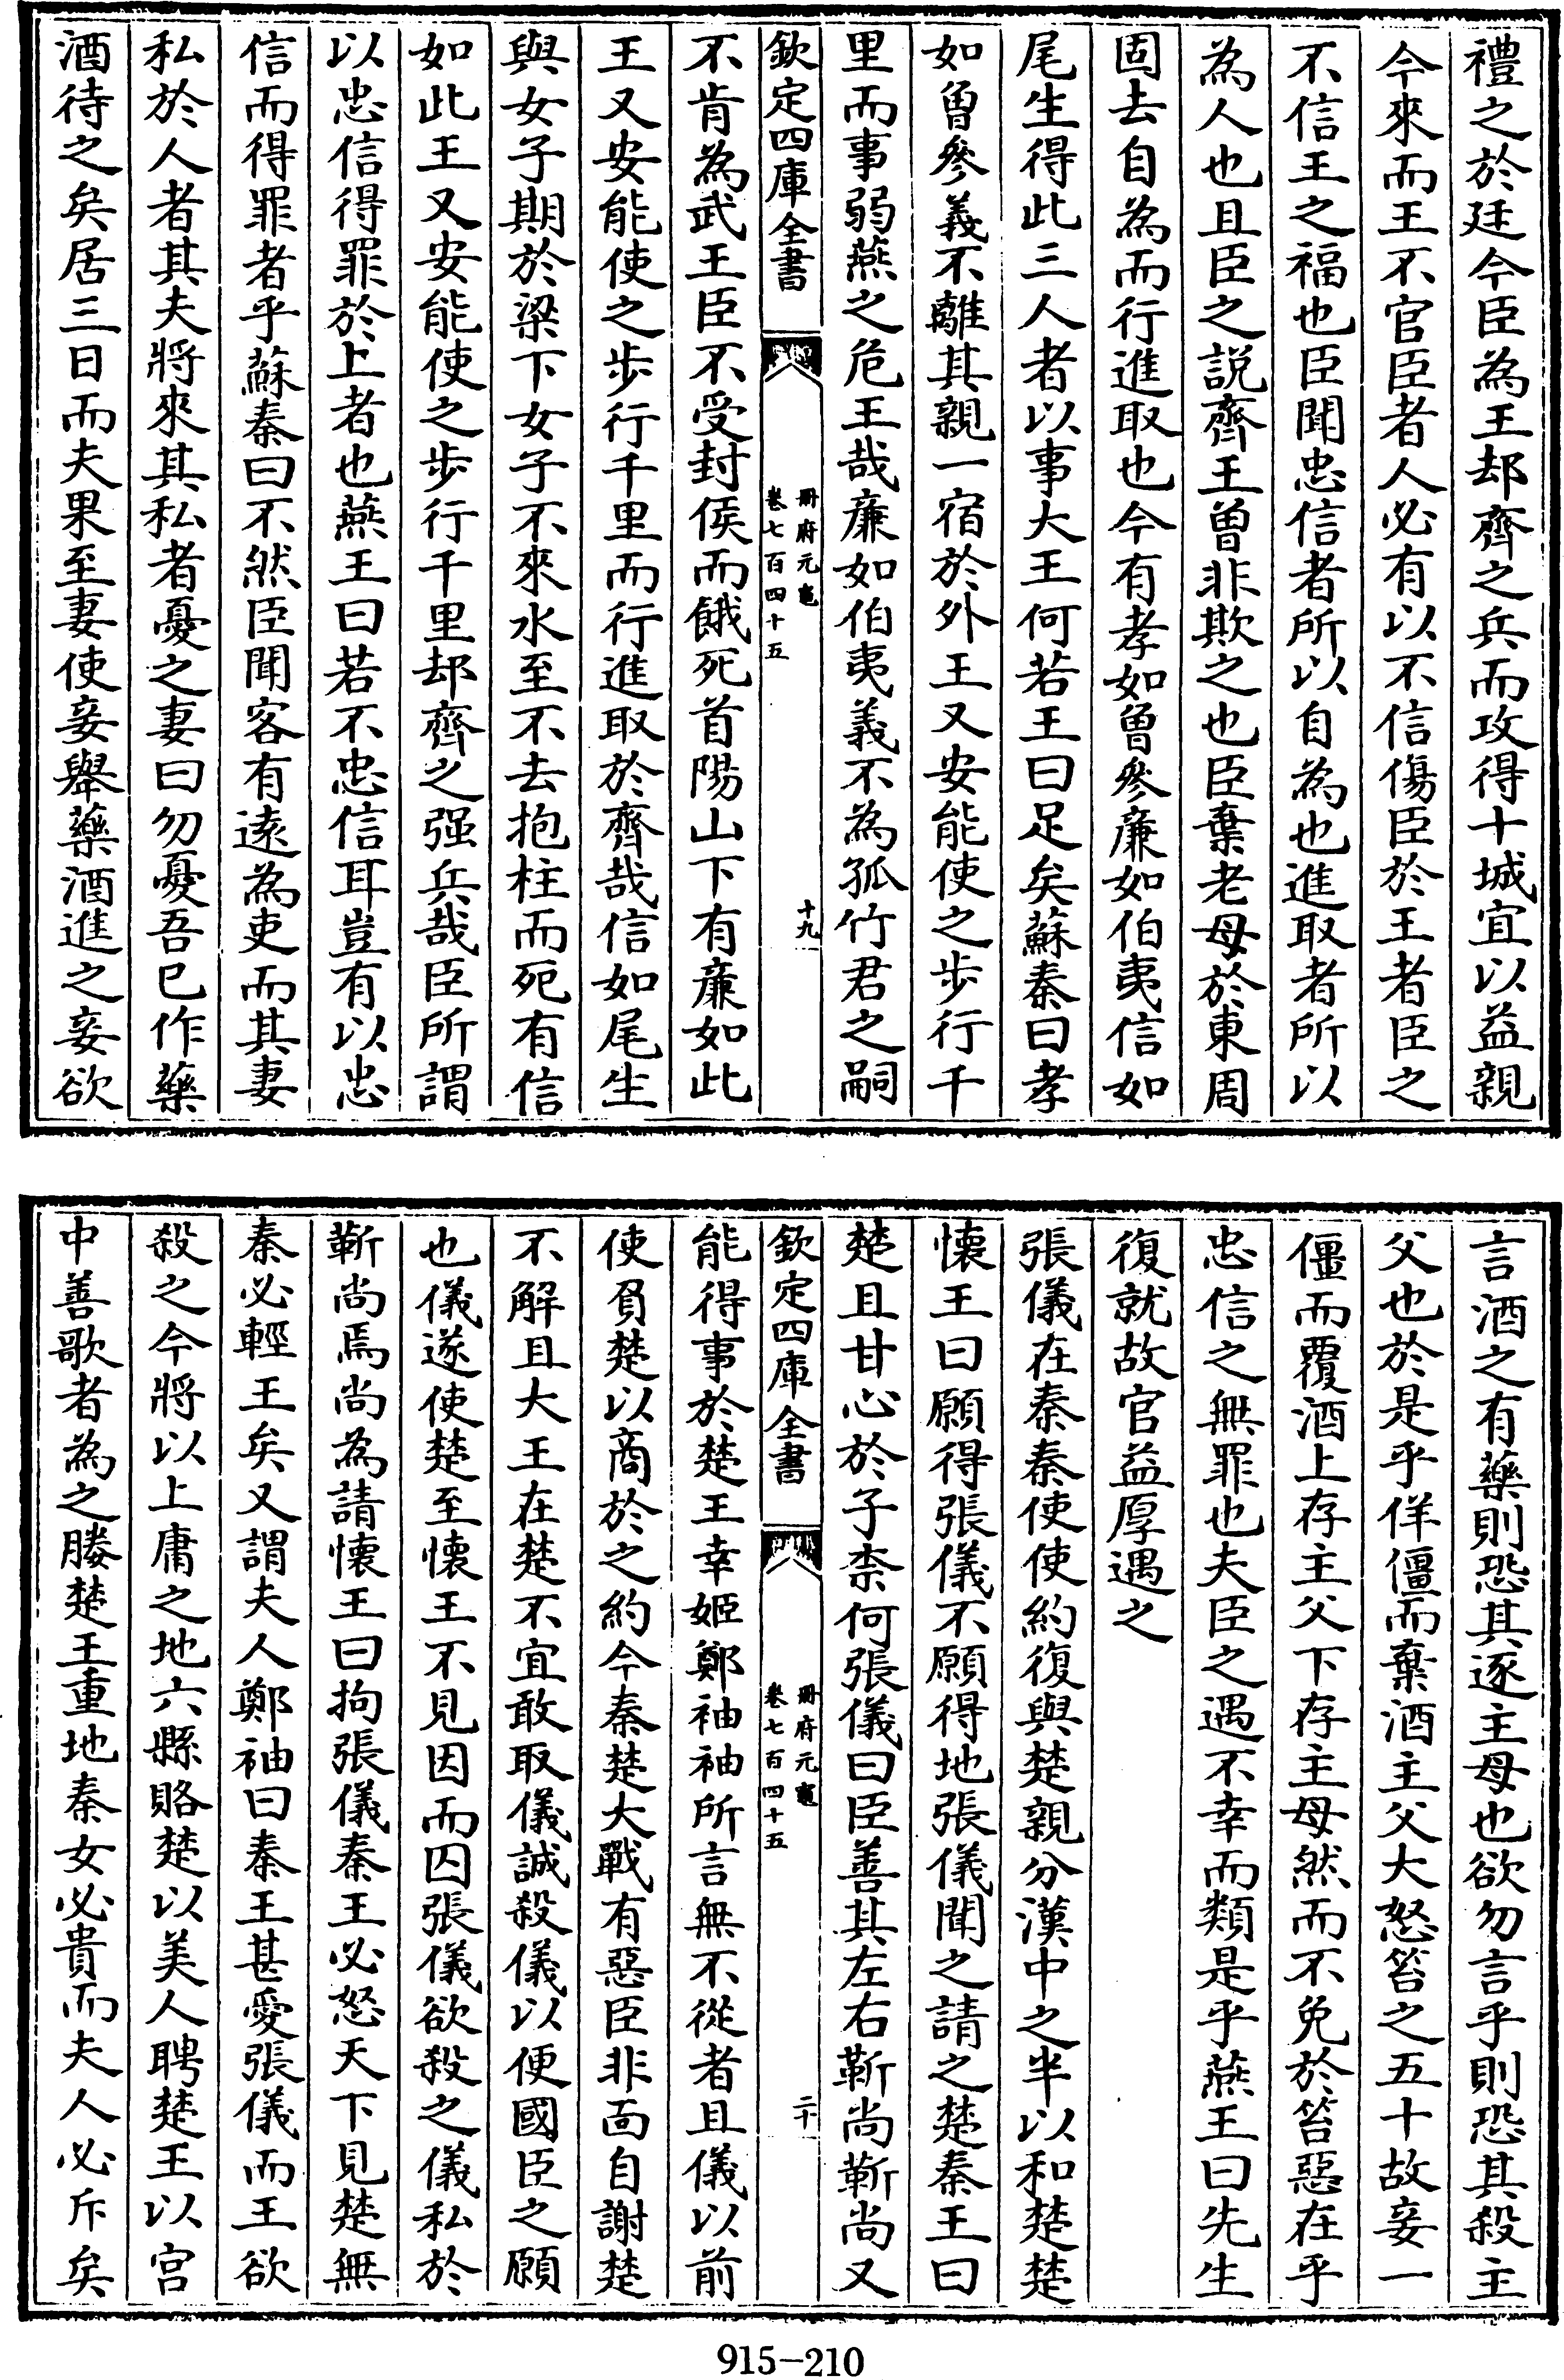 禮之於廷今臣為王却齊之兵而攻得十城宜以益親
今來而王不官臣者人必有以不信傷臣於王者臣之
不信王之福也臣聞忠信者所以自為也進取者所以
為人也且臣之説齊王曾非欺之也臣棄老母於東周
固去自為而行進取也今有孝如曾參廉如伯夷信如
尾生得此三人者以事大王何若王曰足矣蘇秦曰孝
如曾參義不離其親一宿於外王又安能使之步行千
里而事弱燕之危王哉廉如伯夷義不為孤竹君之嗣
欽定四庫全書
冊府元龜
卷七百四十五
十九
不肯為武王臣不受封侯而餓死首陽山下有廉如此
王又安能使之步行千里而行進取於齊哉信如尾生
與女子期於梁下女子不來水至不去抱柱而死有信
如此王又安能使之步行千里却齊之强兵哉臣所謂
以忠信得罪於上者也燕王曰若不忠信耳豈有以忠
信而得罪者乎蘇秦曰不然臣聞客有遠為吏而其妻
私於人者其夫將來其私者憂之妻曰勿憂吾已作藥
酒待之矣居三日而夫果至妻使妾舉藥酒進之妾欲
言酒之有藥則恐其逐主母也欲勿言乎則恐其殺主
父也於是乎佯僵而棄酒主父大怒笞之五十故妾一
僵而覆酒上存主父下存主母然而不免於笞惡在乎
忠信之無罪也夫臣之遇不幸而類是乎燕王曰先生
復就故官益厚遇之
張儀在秦秦使使約復與楚親分漢中之半以和楚楚
懷王曰願得張儀不願得地張儀聞之請之楚秦王曰
楚且甘心於子柰何張儀曰臣善其左右靳尚靳尚又
欽定四庫全書
冊府元龜
卷七百四十五
二十
能得事於楚王幸姬鄭袖袖所言無不從者且儀以前
使負楚以商於之約今秦楚大戰有惡臣非面自謝楚
不解且大王在楚不宜敢取儀誠殺儀以便國臣之願
也儀遂使楚至懷王不見因而囚張儀欲殺之儀私於
靳尚焉尚為請懷王曰拘張儀秦王必怒天下見楚無
秦必輕王矣又謂夫人鄭袖曰秦王甚愛張儀而王欲
殺之今將以上庸之地六縣賂楚以美人聘楚王以宮
中善歌者為之媵楚王重地秦女必貴而夫人必斥矣
915-210